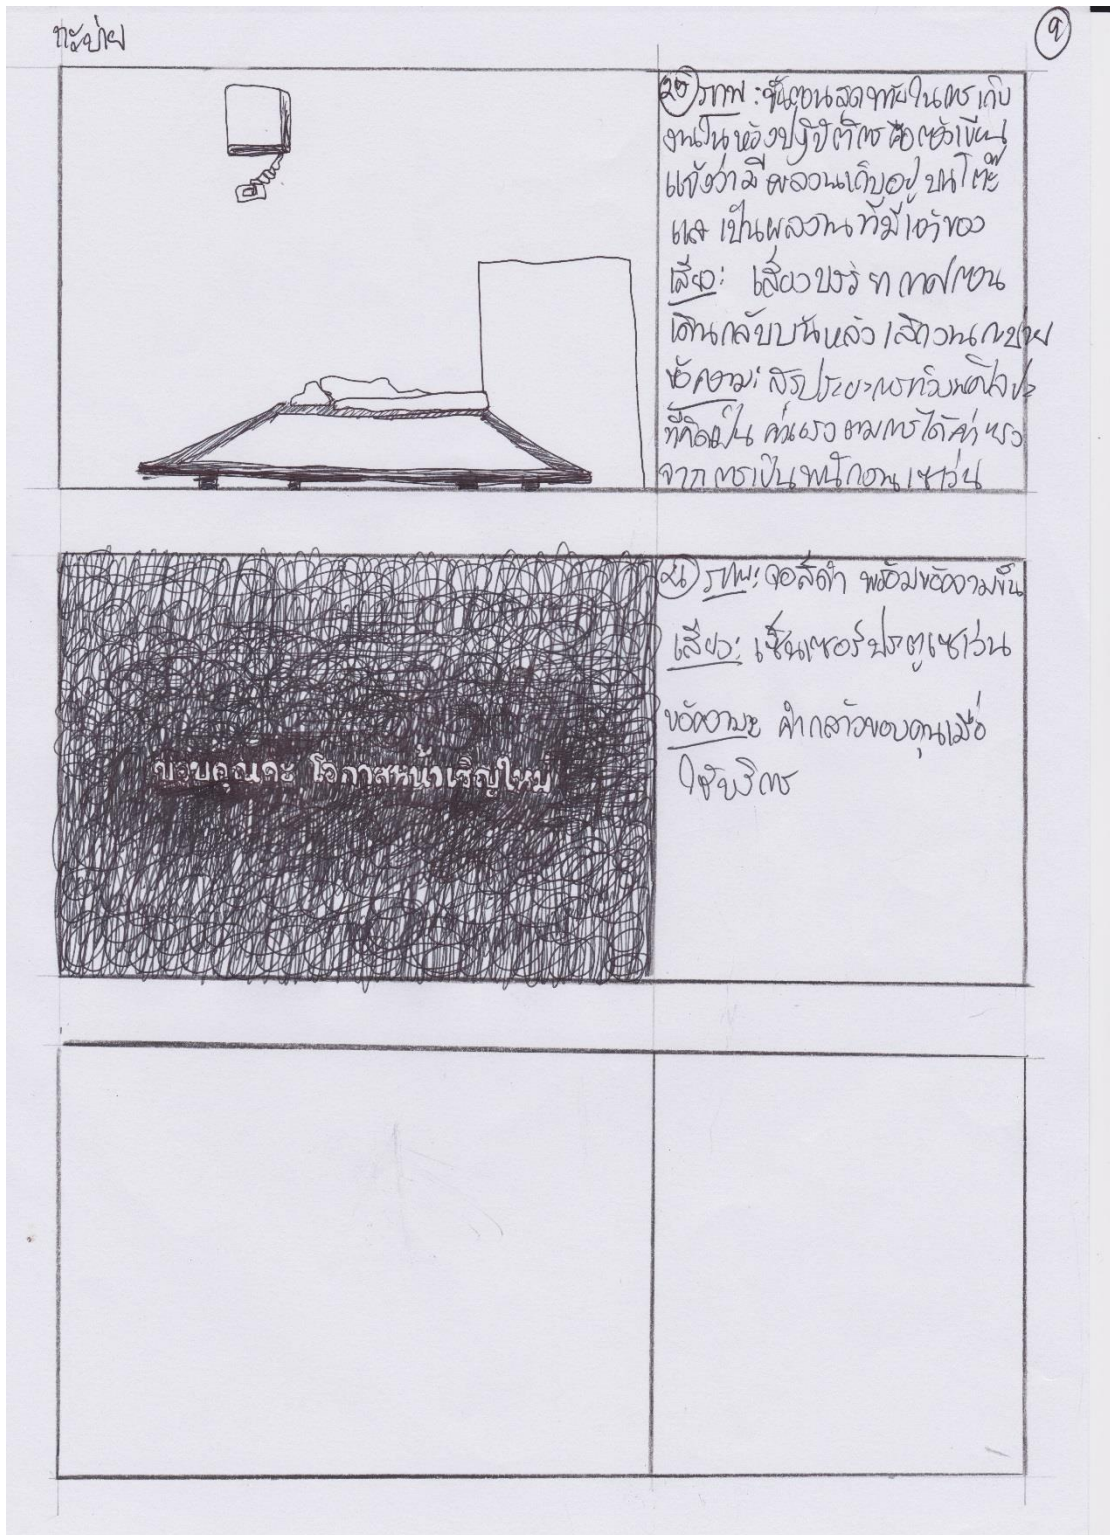 ๙
๒๐ ภาพ: ขั้นตอนสุดท้ายในการเก็บ
งานในห้องปฏิบัติการ คือการเขียน
แจ้งว่ามีผลงานเก็บอยู่ บนโต๊ะ
และ เป็นผลงาน ที่มีเจ้าของ
เสียง: เสียงบรรยากาศตอน
เดินกลับบ้านหลังเลิกงาน
ข้อความ:
ที่คิดเป็น ค่าแรง ตามการได้ค่าแรง
จากการเป็นพนักงานเซเว่น
๒๑ ภาพ: จอสีดำ พร้อมข้อความขึ้น
เสียง: เซ็นเซอร์ประตูเซเว่น
ข้อความ: คำกล่าวขอบคุณเมื่อ
ใช้บริการ
ขอบคุณค่ะ โอกาสหน้าเชิญใหม่